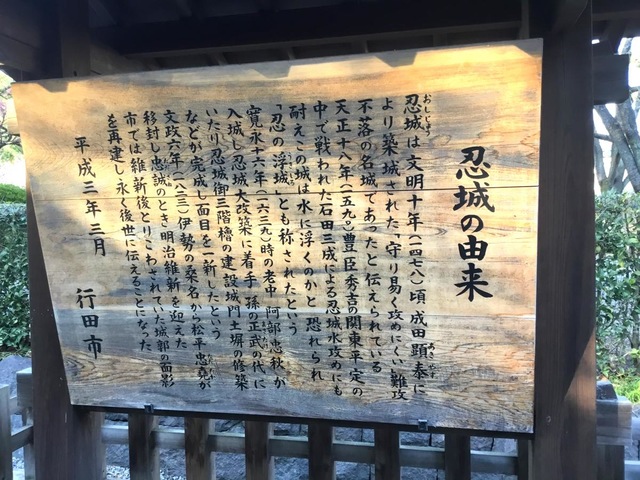 忍城の由来
忍城は文明十年(一四七八)頃成田顕泰に
より築城された、守り易く攻めにくい難攻
不落の名城であったと伝えられている
天正十八年(一五九〇)豊臣秀吉の関東平定の
中で戦われた石田三成による忍城水攻めにも
耐えこの城は水に浮くのかと恐れられ
「忍の浮城」とも称されたという
寛永十六年(一六三九)時の老中阿部忠秋が
入城し忍城大改築に着手孫の正武の代に
いたり忍城御三階櫓の建設城門土塀の修築
などが完成し面目を一新したという
文政六年(一八二三)伊勢の桑名から松平忠堯が
移封し忠誠のとき明治維新を迎えた
市では維新後とりこわされていた城郭の面影
を再建し永く後世に伝えることになった
平成三年三月 行田市